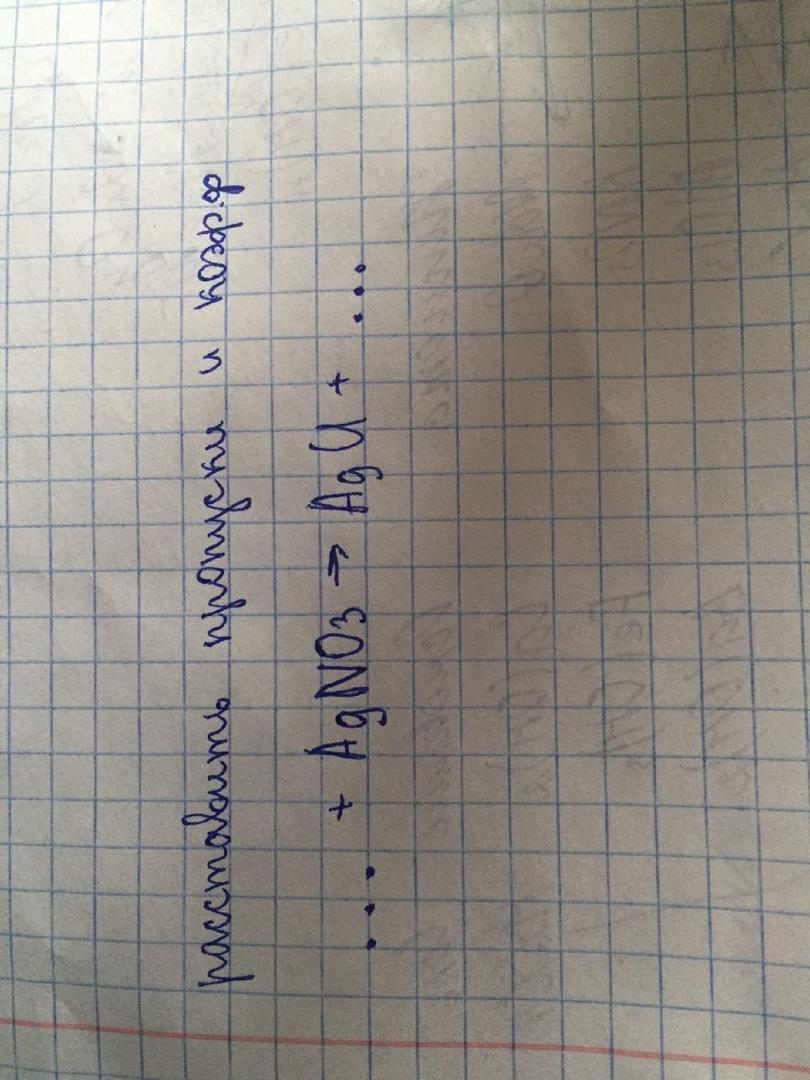 расставить пропуски и коэф.ф
... + AgNO3 → AgCl + ...